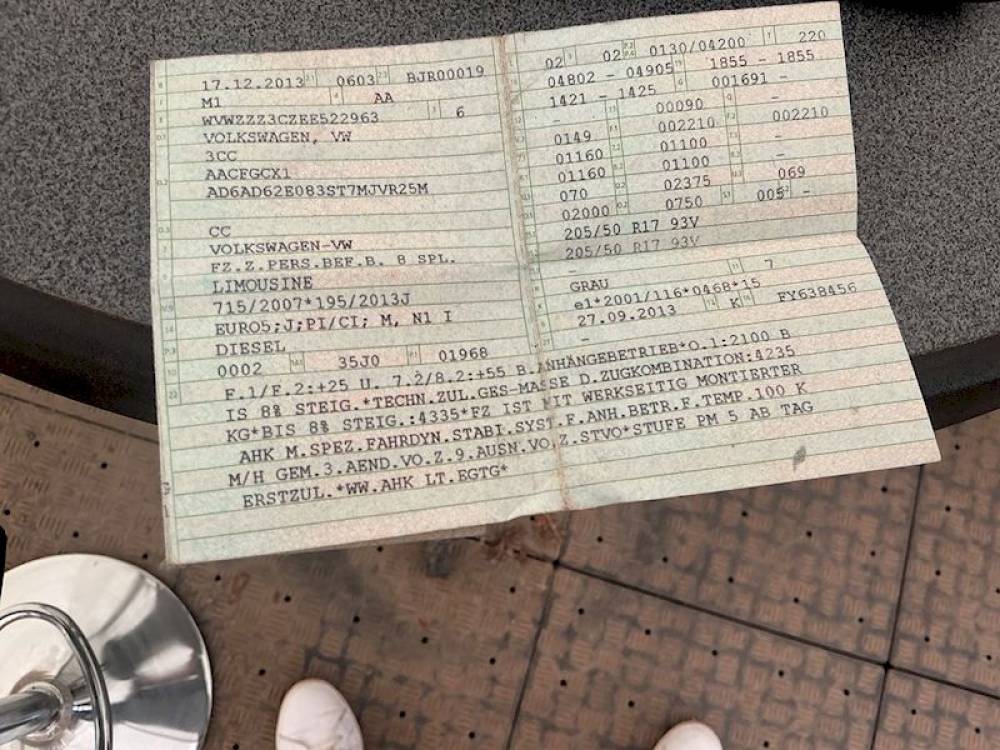 17.12.2013 0603 BJR00019
M1 AA
WVWZZZ3CZEE522963 6
VOLKSWAGEN, VW
3CC
AACFGCX1
AD6AD62E083ST7MJVR25M
CC
VOLKSWAGEN-VW
FZ.Z.PERS.BEF.B. 8 SPL.
LIMOUSINE
715/2007*195/2013J
EURO5;J;PI/CI; M, N1 I
DIESEL
0002 35J0 01968
02 02 0130/04200 220
04802 - 04905 1855 - 1855
1421 - 1425 001691 -
- 00090 -
0149 002210 002210
01160 01100 -
01160 01100 -
070 02375 069
02000 0750 005 -
205/50 R17 93V
205/50 R17 93V
-
GRAU 7
e1*2001/116*0468*15
27.09.2013 K FY638456
-
F.1/F.2:+25 U. 7.2/8.2:+55 B.ANHÄNGEBETRIEB*O.1:2100 B
IS 8% STEIG.*TECHN.ZUL.GES-MASSE D.ZUGKOMBINATION:4235
KG*BIS 8% STEIG.:4335*FZ IST MIT WERKSEITIG MONTIERTER
AHK M.SPEZ.FAHRDYN.STABI.SYST.F.ANH.BETR.F.TEMP.100 K
M/H GEM.3.AEND.VO.Z.9.AUSN.VO.Z.STVO*STUFE PM 5 AB TAG
ERSTZUL.*WW.AHK LT.EGTG*